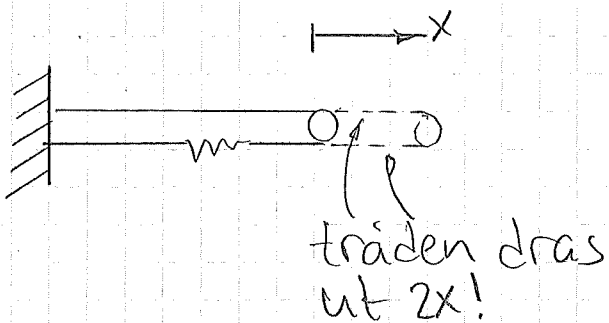 x
tråden dras
ut 2x!